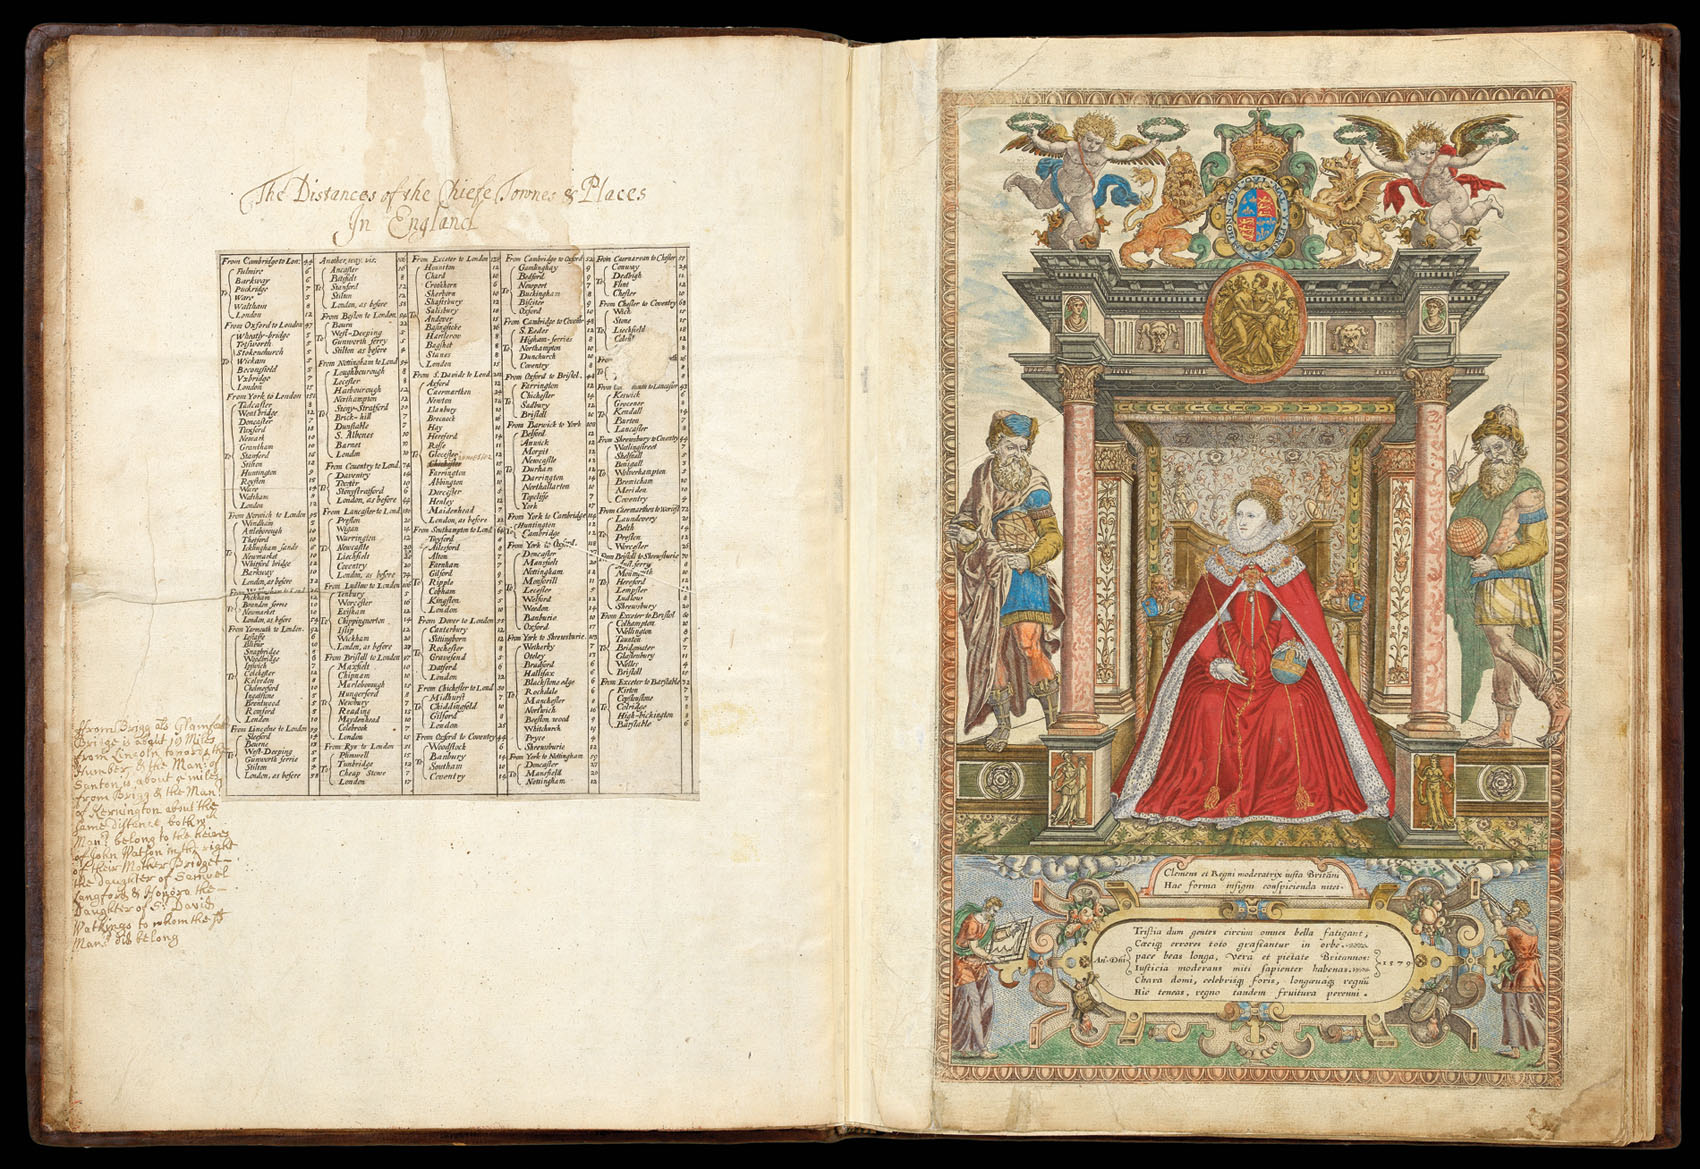 The Distances of the Chiefe Townes & Places
In England
From Cambridge to Lon: 44
To
Fulmire 6
Barkway 4
Puckridge 7
Ware 5
Waltham 8
London 12
From Oxford to London 47
To
Wheatly-bridge 5
Tetsworth 5
Stokenchurch 5
Wickam 5
Beconsfield 5
Vxbridge 7
London 15
From York to London 151
To
Tadcaster 8
Wentbridge 12
Doncaster 7
Tuxford 18
Newark 10
Grantham 10
Stanford 16
Stilton 12
Huntington 9
Royston 15
Ware 13
Waltham 8
London 12
From Norwich to London
To
Windham
Attleborough
Thetford 10
Icklingham sands
Newmarket 10
Whitford bridge
Barkway
London, as before
Pickham
Brandon ferrie 10
Newmarket 10
London, as before
From Yarmouth to London
To
Blibur
Snapbridge
Woodbridge
Ipswich
Colchester 12
Kelvedon
Chelmesford 10
Ingatstone 5
Brentwood 5
Romford 5
London 10
From Lincolne to London
To
Sleeford
Bourne
West-Deeping
Gunworth ferrie
Stilton
London, as before
Another way. viz.
To
Ancaster 16
Bitsfeldt 8
Stanford 12
Stilton 12
London, as before 58
From Boston to London
To
Bourn 22
West-Deeping 5
Gunworth ferry 5
Stilton as before 4
From Nottingham to Lond
To
Loughbourough 8
Lecester 8
Harbourough 12
Northampton 12
Stony-Stratford 10
Brick-hill 7
Dunstable 7
S. Albones 10
Barnet 10
London 10
From Coventry to Lond. 74
To
Daventry 14
Tocter 10
Stonystratford 6
London, as before 44
From Lancaster to Lond
To
Preston 20
Wigan 14
Warrington 12
Newcastle 20
Lichfield 20
Coventry 20
London, as before 74
From Ludlow to London
To
Tenbury 5
Worcester 16
Evisham 12
Chippingnorton 14
Islip 12
Wickham 20
London, as before 27
From Bristoll to London 97
To
Maxfielt 10
Chipnam 10
Marleborough 15
Hungerford 8
Newbury 7
Reading 15
Maydenhead 10
Colebrook 7
London 15
From Rye to London
To
Plimwell 15
Tunbridge 12
Cheap Stow 7
London 17
From Exceter to London
To
Honnton 12
Chard 10
Crookhorn 6
Sherborn 10
Shaftsbury 12
Salisbury 18
Andover 15
Basingstoke 16
Hartlerow 8
Bagshot 8
Stanes 8
London 15
From S. Davids to Lond.
To
Axford 12
Caermarthen 24
Newton 10
Llanbury 10
Brecnock 16
Hay 10
Hereford 14
Rosse 9
Glocester
Farrington
Abbington
Dorcester
Henley
Maidenhead 7
London, as before 22
From Southampton to Lond
To
Twyford 8
Ailesford 8
Alton 7
Farnham 7
Gilford 9
Ripple 5
Cobham 5
Kingston 5
London 10
From Dover to London 55
To
Canterbury 12
Sittingborn 12
Rochester 8
Gravesend 5
Datford 6
London 12
From Chichester to Lond
To
Midhurst 7
Chiddingfold 10
Gilford 8
London 25
From Oxford to Coventry 44
To
Woodstock 6
Banbury 14
Southam 10
Coventry 14
From Cambridge to Oxford
To
Gamlinghay 9
Bedford 9
Newport 7
Buckingham 8
Bisseter 9
Oxford 10
From Cambridge to Coventr
To
S. Eedes 12
Higham-ferries 8
Northampton 10
Dunchurch 8
Coventry 8
From Oxford to Bristol.
To
Farrington 12
Chichester 14
Sadbury 12
Bristoll 10
From Barwick to York
To
Belford 12
Anwick 12
Morpit 12
Newcastle 12
Durham 12
Darrington 14
Northallerton 10
Topcliffe 7
York 17
From York to Cambridge
Huntington
Cambridge
From York to Oxford.
To
Doncaster
Mansfielt
Nottingham 12
Monsorill 11
Lecester 5
Welford 12
Weedon 14
Banburie 10
Oxford 17
From York to Shrewsburie.
To
Wetherby 7
Otoley 17
Bradford 6
Hallifax 6
Blackstone edge 6
Rockdale 6
Manchester 8
Norwich 16
Beeston wood 9
Whitchurch 15
Pryce 4
Shrewsburie 12
From York to Nottingham
To
Doncaster 27
Mansfield 20
Nottingham 12
From Caernarvan to Chester
To
Conway 24
Denbigh 12
Flint 12
Chester 10
From Chester to Coventry
To
Wich 14
Stone 15
Liechfield 18
Colesil 12
From
To
From to Lancaster
To
Keswick 6
Grocener 8
Kendall 14
Burton 7
Lancaster 8
From Shrewsbury to Coventry 44
To
Watlingstreet 7
Shefnall 5
Bonigall 3
Wolverhampton 5
Bremicham 10
Meriden 10
Coventry 4
From Caermarthen to Worcest
To
Laundovery 20
Belth 14
Preston
Worcester
From Bristoll to Shrewsburie
To
Hereford
Lempster
Ludlow
Shrewsbury 20
From Exceter to Bristol
To
Colhampton 10
Wellington
Taunton
Bridgwater 7
Glastenbury 11
Welles 4
Bristoll 15
From Exceter to Barstable
To
Kirton 7
Colridge
High-bickington
Barstable 6
From Brigg als Glamford
Bridge is about 19 Miles
from Lincoln to north the
Humber, & the Man: of
Santon is about 4 miles
from Brigg & the Man:
of Kernington about the
same distence, both wch
Man:s belong to the heires
of John Watson in the right
of their Mother Bridget
the Daughter of Samuel
Langford & Honora the
Daughter of Sr. David
Watkings to whom the sd
Man:s did belong
HONI SOIT QVI MAL Y PENSE
Clemens et Regni moderatrix iusta Britāni
Hac forma insigni conspicienda nitet.
Tristia dum gentes circùm omnes bella fatigant,
Cæciq; errores toto grassantur in orbe.
pace beas longa, vera et pietate Britannos:
An. Dñi
Iusticia moderans miti sapienter habenas.
1579
Chara domi, celebrisq; foris, longævaq; regnū
Hic teneas, regno tandem fruitura perenni.